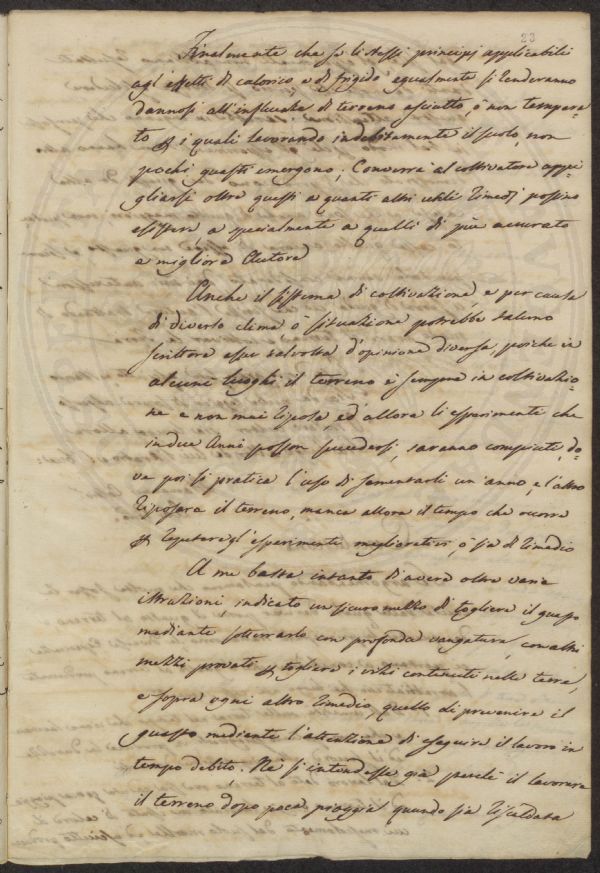 23
Finalmente che se li stessi principj applicabili
agl'effetti di calorico, e di frigido egualmente si renderanno
dannosi all'influenza di terreno asciutto, o non tempera=
to i quali lavorando indebitamente il suolo, non
pochi guasti emergono; Converrà al coltivatore appi=
gliarsi oltre questi a quanti altri utili rimedj possino
esistere e specialmente a quelli di più accurato
e migliore Autore
Anche il sistema di coltivazione, e per causa
di diverso clima o situazione potrebbe taluno
scrittore esser talvolta d'opinione diversa, poiche in
alcuni luoghi il terreno è sempre in coltivazio=
ne e non mai riposa, ed allora li esperimenti che
in due Anni posson succedersi, saranno compiuti, do=
ve poi si pratica l'uso di sementarli un'anno, e l'altro
riposare il terreno, manca allora il tempo che occorre
repetere gl'esperimenti miglioratori, o sia di rimedio
A me basta intanto di avere oltre varie
istruzioni, indicato un sicuro mezzo di togliere il guasto
mediante sotterrarlo con profonda vangatura, con altri
mezzi provati togliere i vizi contenuti nella terra,
e sopra ogni altro rimedio, quello di prevenire il
guasto mediante l'attenzione di eseguire il lavoro in
tempo debito. Nè s'intendesse già perchè il lavorare
il terreno dopo poca pioggia quando sia riscaldata